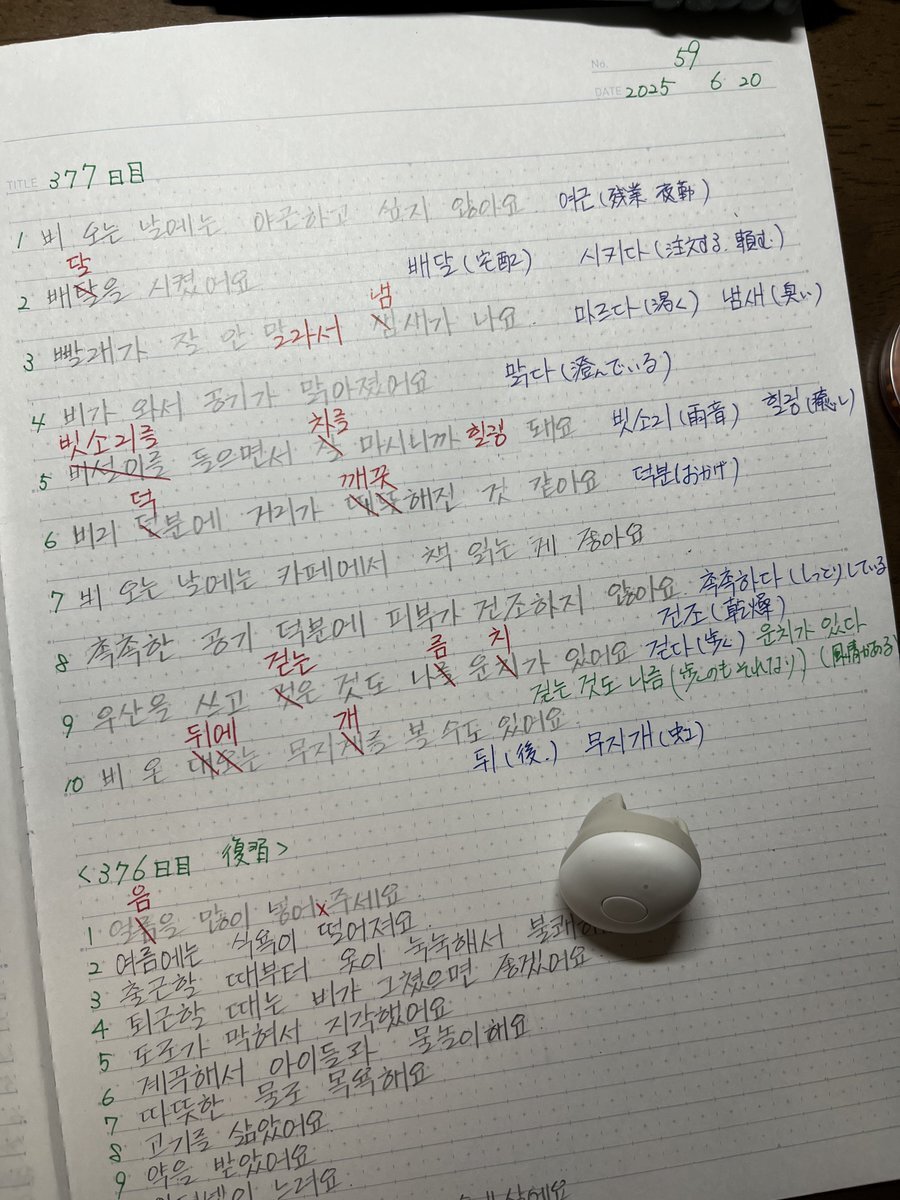 No. 59
DATE 2025 6 20
TITLE 377日目
1 비 오는 날에는 야근하고 싶지 않아요 여근(残業 夜勤)
달
2 배달을 시켰어요 배달(宅配) 시키다(注文する. 頼む.)
냄
3 빨래가 잘 안 말라서 새가 나요. 마르다(渇く) 냄새(臭い)
4 비가 와서 공기가 맑아졌어요 맑다(澄んでいる)
빗소리를 차를
5 들으면서 마시니까 힐링 돼요 빗소리(雨音) 힐링(癒し)
덕 깨끗
6 비리 분에 거리가 해진 것 같아요 덕분(おかげ)
7 비 오는 날에는 카페에서 책 읽는 게 좋아요
8 촉촉한 공기 덕분에 피부가 건조하지 않아요 촉촉하다(しっとりしている
건조(乾燥)
걷는 름 치
9 우산을 쓰고 것은 것도 나 운 가 있어요 걷다(歩く) 운치가 있다
걷는 것도 나름(歩くのもそれなり) (風情がある)
뒤에 개
10 비 온 는 무지 를 볼 수도 있어요.
뒤(後.) 무지개(虹)
<376日目 復習>
음
1 얼 을 많이 넣어 주세요
2 여름에는 식욕이 떨어져요
3 출근할 때부터 옷이 눅눅해서 불쾌
4 퇴근할 때는 비가 그쳤으면 좋겠어요
5 도로가 막혀서 지각했어요
6 계곡에서 아이들과 물놀이해요
7 따뜻한 물로 목욕해요
8 고기를 삶았어요
9 약을 받았어요
느려요